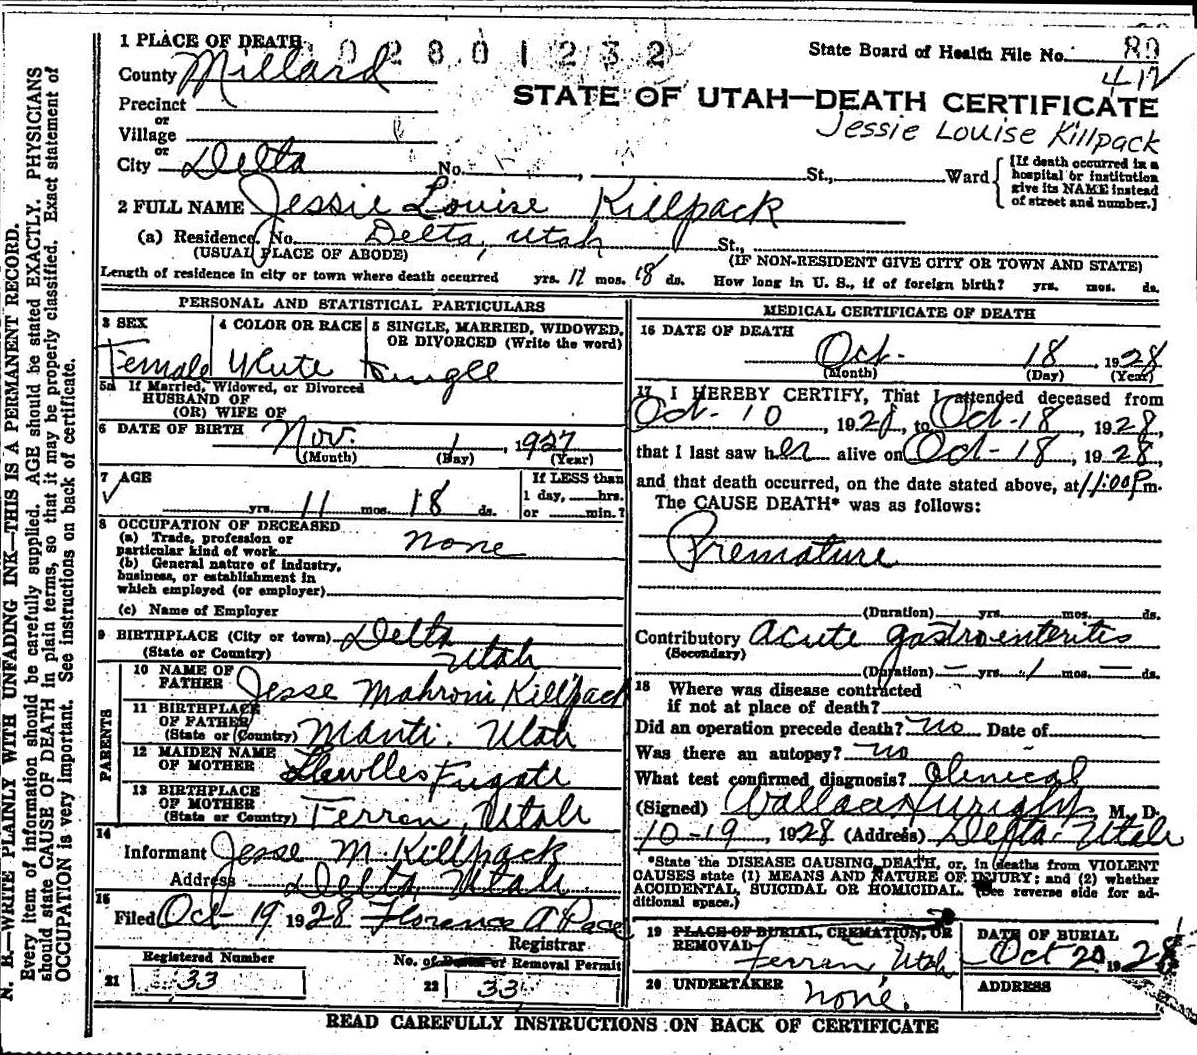 1 PLACE OF DEATH 02801232 State Board of Health File No. 80
County Millard 412
STATE OF UTAH—DEATH CERTIFICATE
Precinct
or
Jessie Louise Killpack
Village
or
City Delta No. , St., Ward
[If death occurred in a
hospital or institution
give its NAME instead
of street and number.]
2 FULL NAME Jessie Louise Killpack
(a) Residence. No. Delta, Utah St.,
(USUAL PLACE OF ABODE) (IF NON-RESIDENT GIVE CITY OR TOWN AND STATE)
Length of residence in city or town where death occurred yrs. 11 mos. 18 ds. How long in U. S., if of foreign birth? yrs. mos. ds.
PERSONAL AND STATISTICAL PARTICULARS
3 SEX 4 COLOR OR RACE 5 SINGLE, MARRIED, WIDOWED,
OR DIVORCED (Write the word)
Female White Single
5a If Married, Widowed, or Divorced
HUSBAND OF
(OR) WIFE OF
6 DATE OF BIRTH Nov. 1, 1927
(Month) (Day) (Year)
7 AGE If LESS than
1 day, hrs.
yrs. 11 mos. 18 ds. or min.?
8 OCCUPATION OF DECEASED
(a) Trade, profession or
particular kind of work none
(b) General nature of industry,
business, or establishment in
which employed (or employer)
(c) Name of Employer
9 BIRTHPLACE (City or town) Delta
(State or Country) Utah
PARENTS
10 NAME OF
FATHER Jesse Mahroni Killpack
11 BIRTHPLACE
OF FATHER
(State or Country) Manti. Utah
12 MAIDEN NAME
OF MOTHER Fugate
13 BIRTHPLACE
OF MOTHER
(State or Country) Ferron, Utah
14
Informant Jesse M. Killpack
Address Delta Utah
15
Filed Oct-19 1928 Florence A Pace
Registrar
Registered Number No. of Removal Permit
21 33 22 33
MEDICAL CERTIFICATE OF DEATH
16 DATE OF DEATH
Oct. 18 1928
(Month) (Day) (Year)
17 I HEREBY CERTIFY, That I attended deceased from
Oct-10, 1928, to Oct-18, 1928,
that I last saw her alive on Oct-18, 1928,
and that death occurred, on the date stated above, at 11:00 P.m.
The CAUSE DEATH* was as follows:
Premature
(Duration) yrs. mos. ds.
Contributory Acute gastroenteritis
(Secondary)
(Duration) — yrs. 1 mos. — ds.
18 Where was disease contracted
if not at place of death?
Did an operation precede death? no Date of
Was there an autopsy? no
What test confirmed diagnosis? Clinical
(Signed) M. D.
10-19, 1928 (Address) Delta-Utah
*State the DISEASE CAUSING DEATH, or, in deaths from VIOLENT
CAUSES state (1) MEANS AND NATURE OF INJURY; and (2) whether
ACCIDENTAL, SUICIDAL OR HOMICIDAL. (See reverse side for ad-
ditional space.)
19 PLACE OF BURIAL, CREMATION, OR
REMOVAL Ferron, Utah
DATE OF BURIAL
Oct 20 1928
20 UNDERTAKER none. ADDRESS
READ CAREFULLY INSTRUCTIONS ON BACK OF CERTIFICATE
N. B.—WRITE PLAINLY WITH UNFADING INK—THIS IS A PERMANENT RECORD.
Every item of information should be carefully supplied. AGE should be stated EXACTLY. PHYSICIANS
should state CAUSE OF DEATH in plain terms, so that it may be properly classified. Exact statement of
OCCUPATION is very important. See instructions on back of certificate.